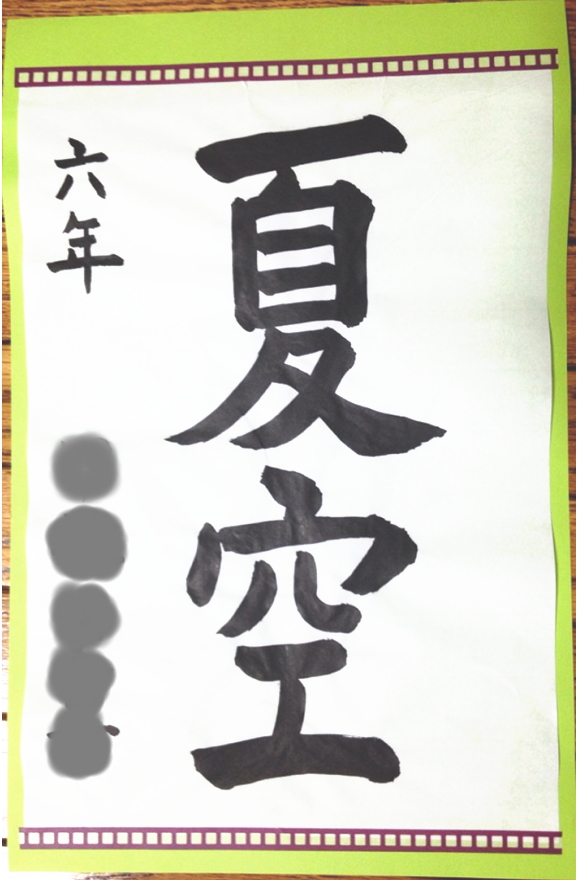 夏空
六年